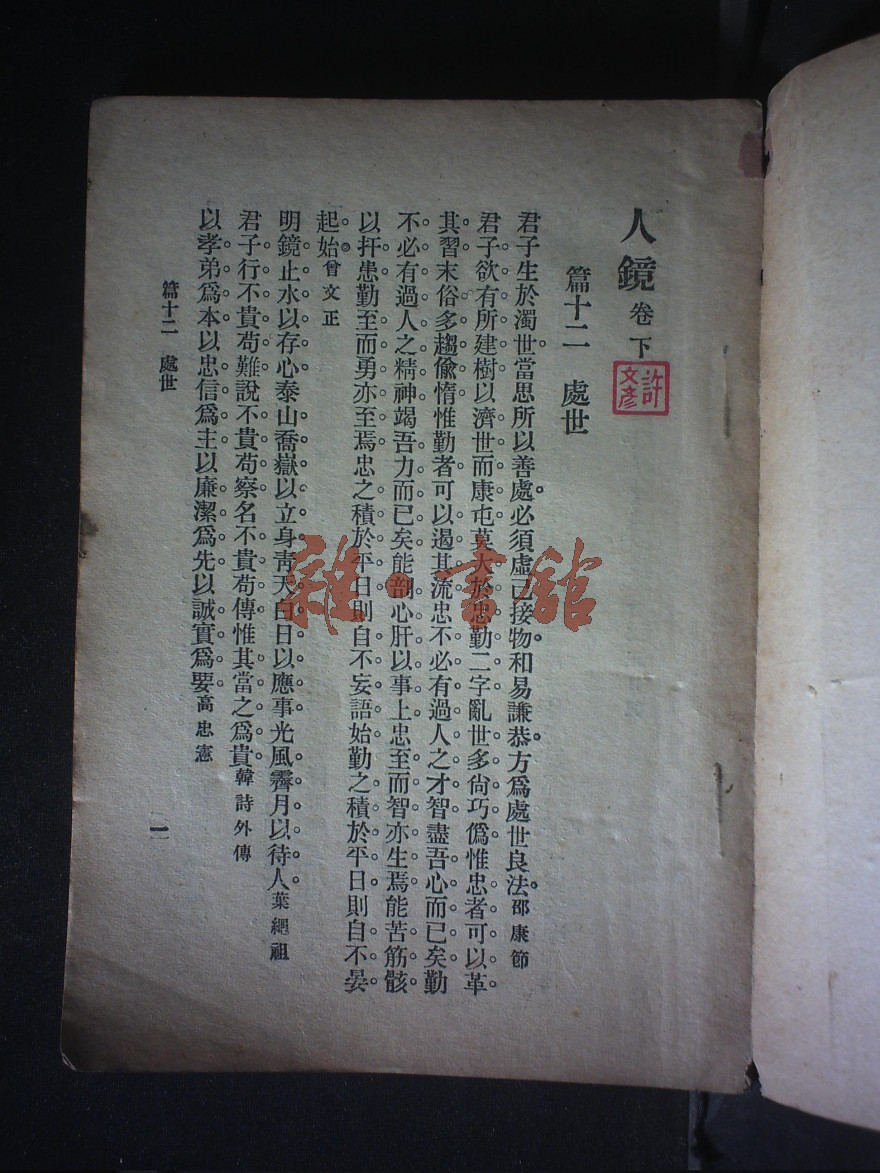 人鏡 卷下
許文彥
篇十二 處世
君子生於濁世當思所以善處必須虛己接物和易謙恭方爲處世良法。邵康節
君子欲有所建樹以濟世而康屯莫大於忠勤二字亂世多尙巧僞惟忠者可以革
其習末俗多趨偸惰惟勤者可以遏其流忠不必有過人之才智盡吾心而已矣勤
不必有過人之精神竭吾力而已矣能剖心肝以事上忠至而智亦生焉能苦筋骸
以扞患勤至而勇亦至焉忠之積於平日則自不妄語始勤之積於平日則自不晏
起始。曾文正
明鏡止水以存心泰山喬嶽以立身靑天白日以應事光風霽月以待人。葉繩祖
君子行不貴苟難說不貴苟察名不貴苟傳惟其當之爲貴。韓詩外傳
以孝弟爲本以忠信爲主以廉潔爲先以誠實爲要。高忠憲
篇十二 處世
一
雜·書館